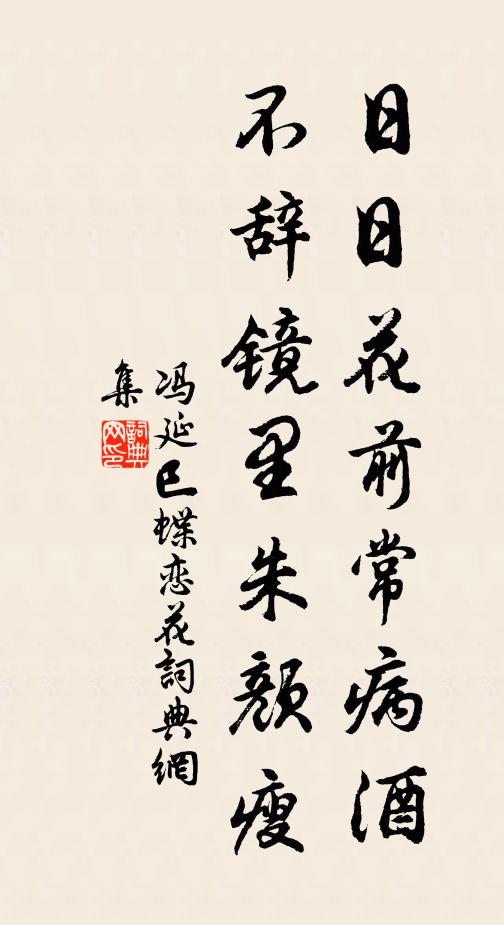 日日花前常病酒
不辞镜里朱颜瘦
冯延巳蝶恋花詞典網
集
詞典网印